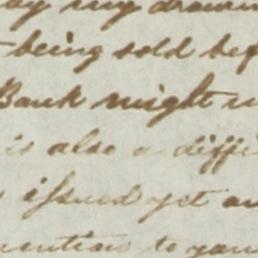 by my drawin
being sold bef
Bank might n
is also a diffi
issued yet an
mention to your